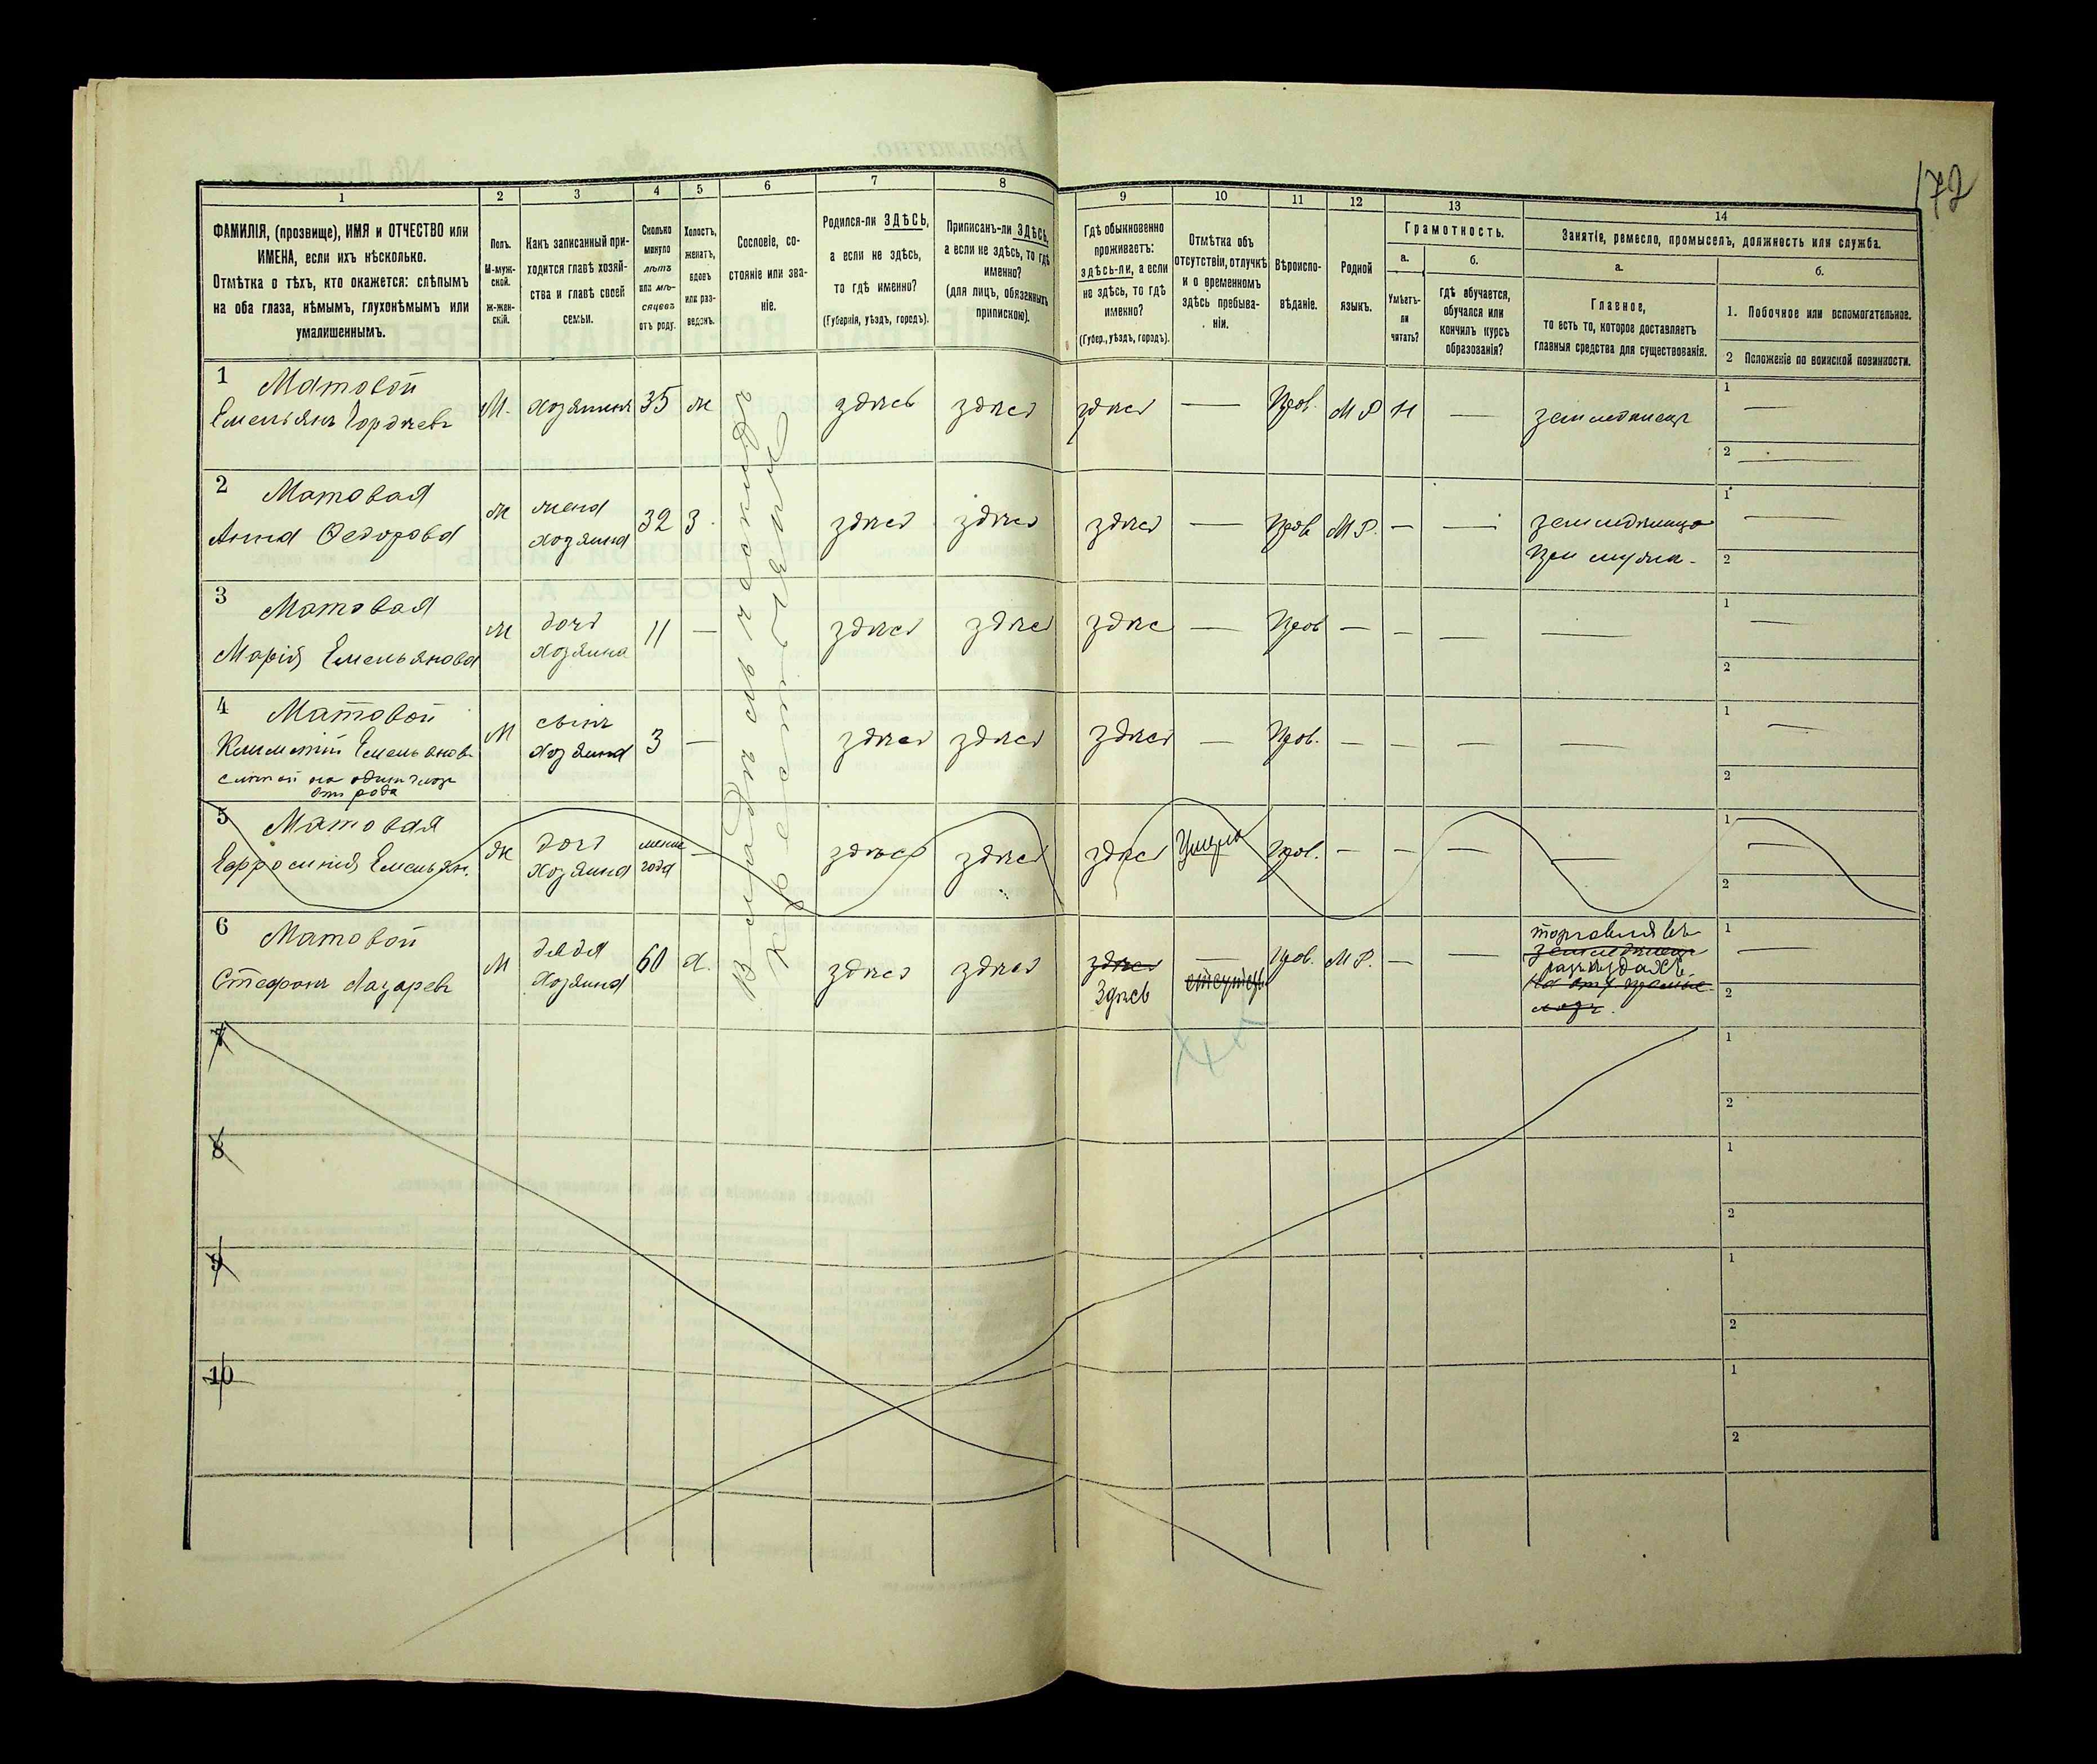 172
1
2
3
4
5
6
7
8
9
10
11
12
13
14
ФАМИЛІЯ, (прозвище), ИМЯ и ОТЧЕСТВО или
ИМЕНА, если ихъ нѣсколько.
Отмѣтка о тѣхъ, кто окажется: слѣпымъ
на оба глаза, нѣмымъ, глухонѣмымъ или
умалишеннымъ.
Полъ.
М-муж-
ской.
ж-жен-
скій.
Какъ записанный при-
ходится главѣ хозяй-
ства и главѣ своей
семьи.
Сколько
минуло
лѣтъ
или мѣ-
сяцевъ
отъ роду.
Холостъ,
женатъ,
вдовъ
или раз-
веденъ.
Сословіе, со-
стояніе или зва-
ніе.
Родился-ли ЗДѢСЬ,
а если не здѣсь,
то гдѣ именно?
(Губернія, уѣздъ, городъ).
Приписанъ-ли ЗДѢСЬ,
а если не здѣсь, то гдѣ
именно?
(для лицъ, обязанныхъ
припискою).
Гдѣ обыкновенно
проживаетъ:
здѣсь-ли, а если
не здѣсь, то гдѣ
именно?
(Губер., уѣздъ, городъ).
Отмѣтка объ
отсутствіи, отлучкѣ
и о временномъ
здѣсь пребыва-
ніи.
Вѣроиспо-
вѣданіе.
Родной
языкъ.
Грамотность.
а.
Умѣетъ-
ли
читать?
б.
гдѣ обучается,
обучался или
кончилъ курсъ
образованія?
Занятіе, ремесло, промыселъ, должность или служба.
а.
Главное,
то есть то, которое доставляетъ
главныя средства для существованія.
б.
1. Побочное или вспомогательное.
2 Положеніе по воинской повинности.
1 Матовой
Емельянъ Гордѣевъ
М. хозяинъ 35 ж здѣсь здѣсь здѣсь — Прав. МР Н — земледѣлецъ
1 —
2 —
2 Матовая
Анна Федорова
ж жена
хозяина
32 З. здѣсь здѣсь здѣсь — Прав МР. — — земледѣлица
при мужѣ.
1 —
2
3 Матовая
Марія Емельянова
ж дочь
хозяина
11 — здѣсь здѣсь здѣс — Прав — — — —
1 —
2
4 Матовой
Климентій Емельяновъ
слѣпой на одинъ глазъ
отъ рода
М сынъ
хозяина
3 — здѣсь здѣсь здѣсь — Прав. — — — —
1 —
2
5 Матовая
Ефросинія Емельян.
ж дочь
хозяина
менѣе
года
— здѣсь здѣсь здѣсь Умерла Прав. — — — —
1 —
2
6 Матовой
Стефанъ Лазаревъ
М дядя
хозяина
60 Х. здѣсь здѣсь здѣсь
Здѣсь
—
отсутст.
Прав. МР. — — торговля въ
земледѣлецъ
разъѣздахъ
1 —
2
Владѣльческихъ
Крестьянъ
7
1
2
8
1
2
9
1
2
10
1
2